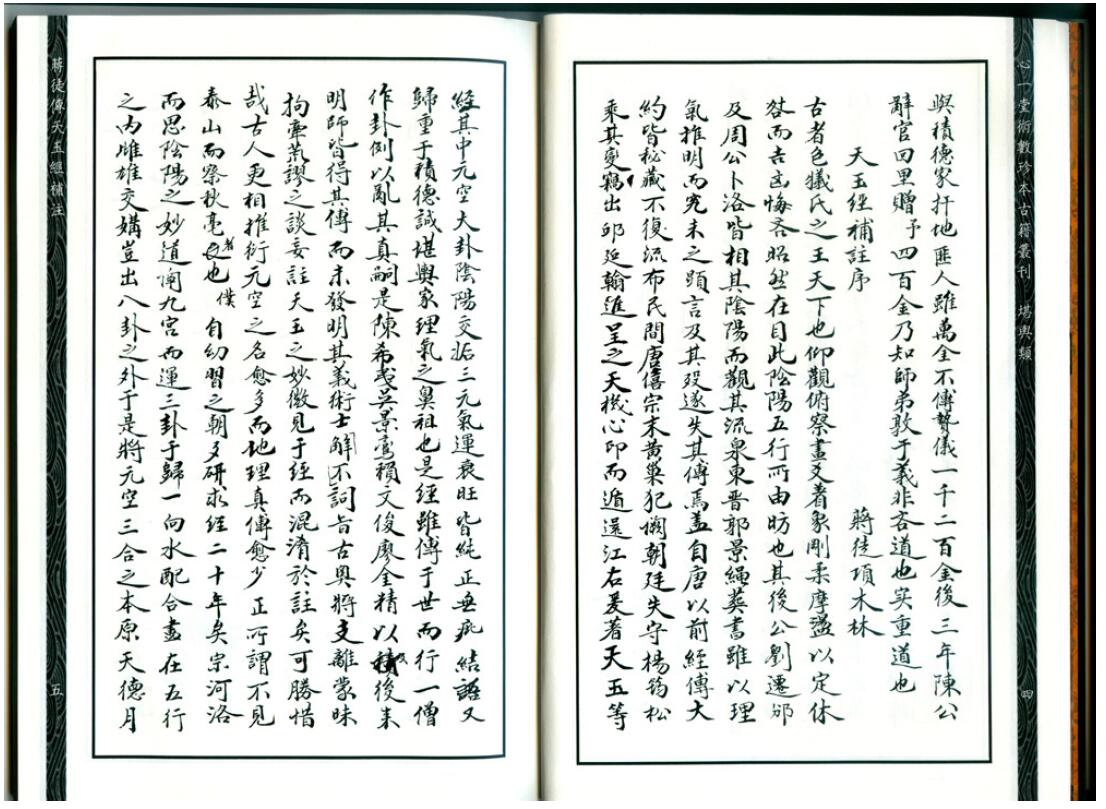 心一堂術數珍本古籍叢刊 堪輿類
四
與積德家扞地匪人雖萬金不傳贄儀一千二百金後三年陳公
辭官回里贈予四百金乃知師弟敦于義非吝道也实重道也
天玉經補註序
蔣徒項木林
古者包犧氏之王天下也仰觀俯察畫爻着象剛柔摩盪以定休
咎而吉凶悔吝昭然在目此陰陽五行所由昉也其後公劉遷邠
及周公卜洛皆相其陰陽而觀其流泉東晋郭景絕葬書雖以理
氣推明而究未之顕言及其歿遂失其傳焉盖自唐以前經傳大
約皆秘藏不復流布民間唐僖宗末黄巢犯闕朝廷失守楊筠松
乘其變竊出邱延翰進呈之天機心印而遁還江右爰著天玉等
經其中元空大卦陰陽交姤三元氣運衰旺皆純正無疵結語又
歸重于積德誠堪輿家理氣之鼻祖也是經雖傳于世而行一僧
作卦例以亂其真嗣是陳希夷吳景鸞賴文俊廖金精以後来
明師皆得其傳而未發明其義術士解不詞旨古奥將支離蒙昧
拘牽荒謬之談妄註天玉之妙微見于經而混淆於註矣可勝惜
哉古人更相推衍元空之名愈多而地理真傳愈少正所謂不見
泰山而察秋毫者也僕自幼習之朝夕研求經二十年矣宗河洛
而思陰陽之妙道闡九宮而運三卦于歸一向水配合盡在五行
之内雌雄交媾豈出八卦之外于是將元空三合之本原天德月
蔣徒傳天玉經補注
五